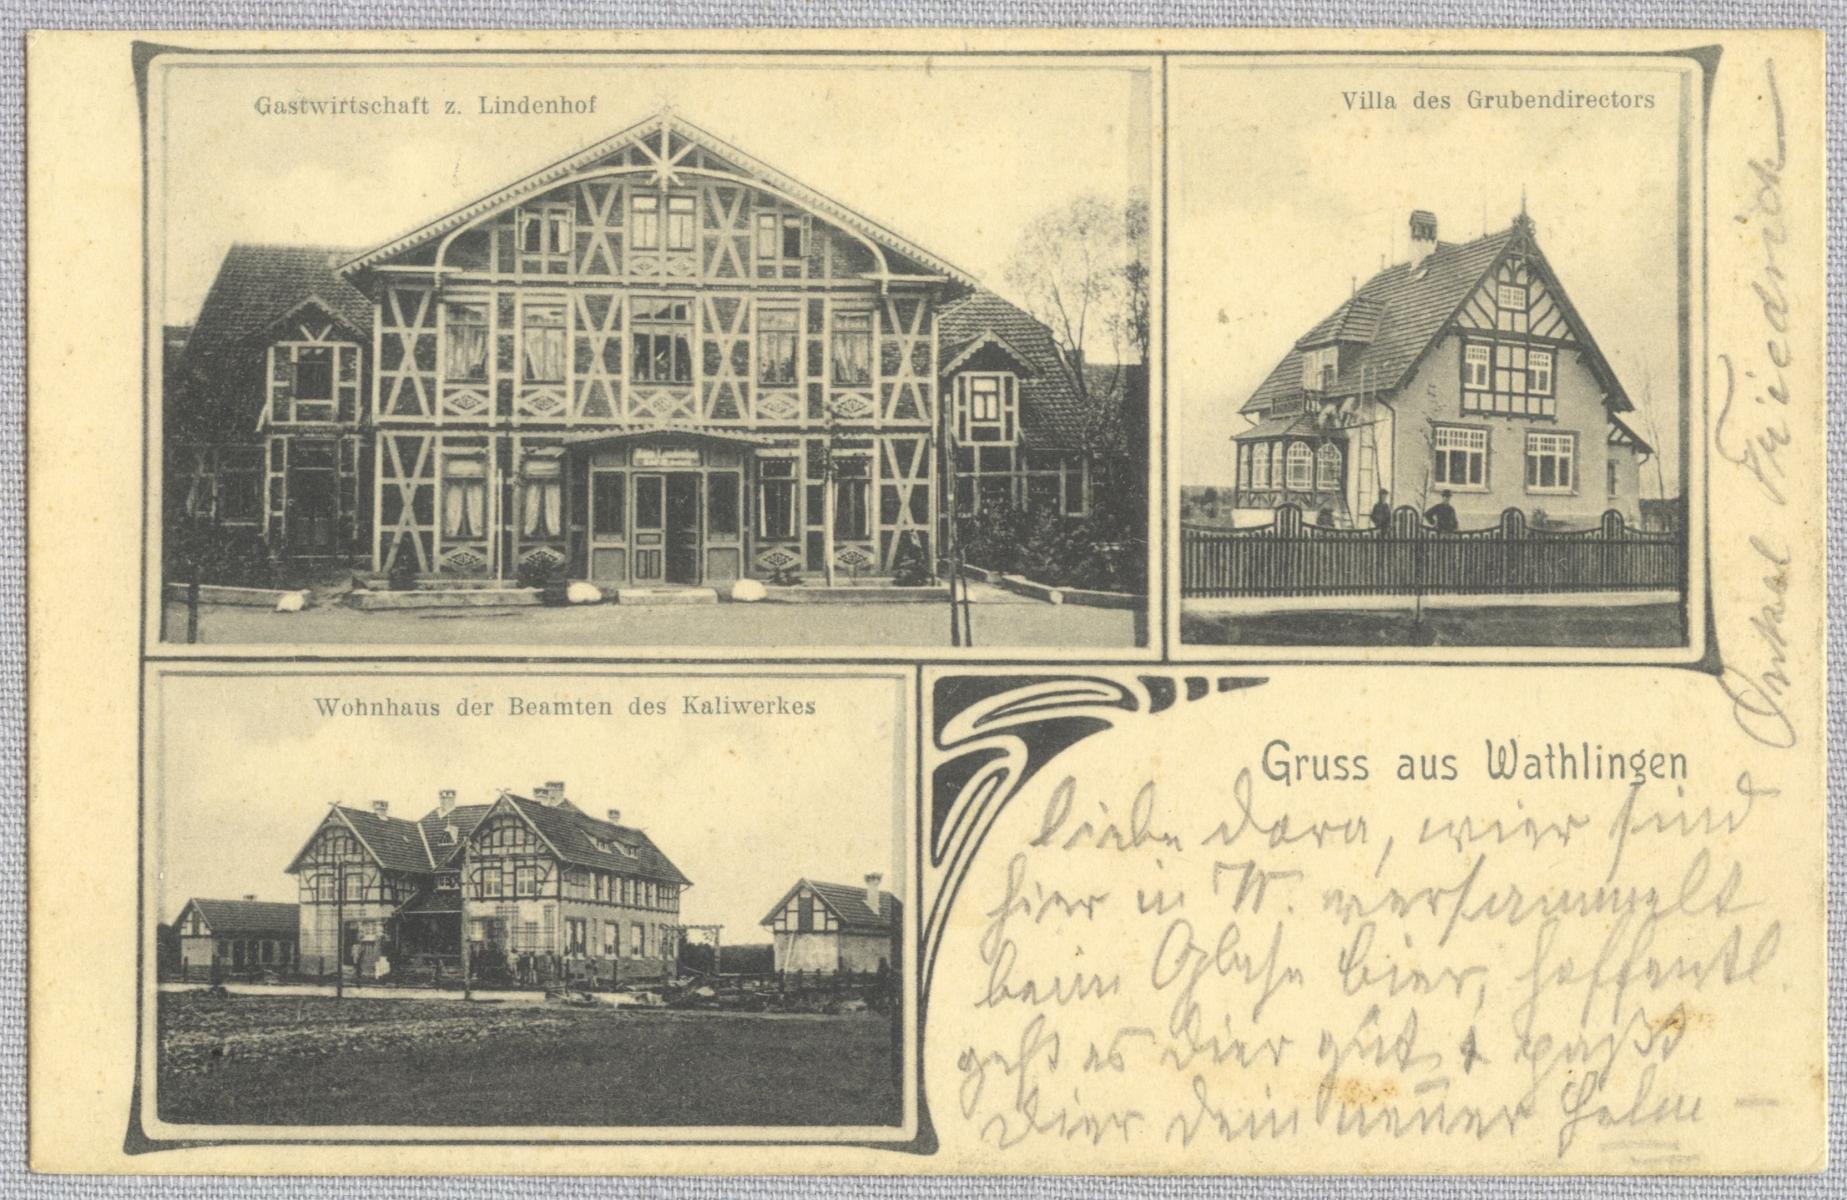 Gastwirtschaft z. Lindenhof
Villa des Grubendirectors
Wohnhaus der Beamten des Kaliwerkes
Gruss aus Wathlingen
Liebe Dora, wier sind
hier in W. versammelt
beim Glase Bier, hoffentl.
geht es Dier gut & paßt
Dier dein neuer Helm –
Onkel Friedrich